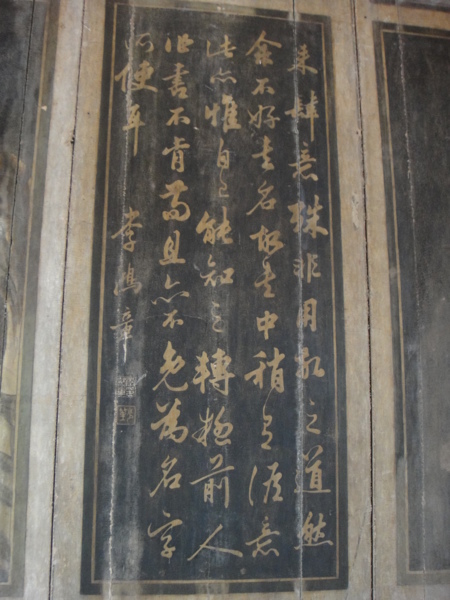 来肆意殊非用敬之道然
余不好書名故書中稍有淡意
此亦惟自己能知之轉前人
作書不肯苟且亦不免為名字
所使耳 李鴻章